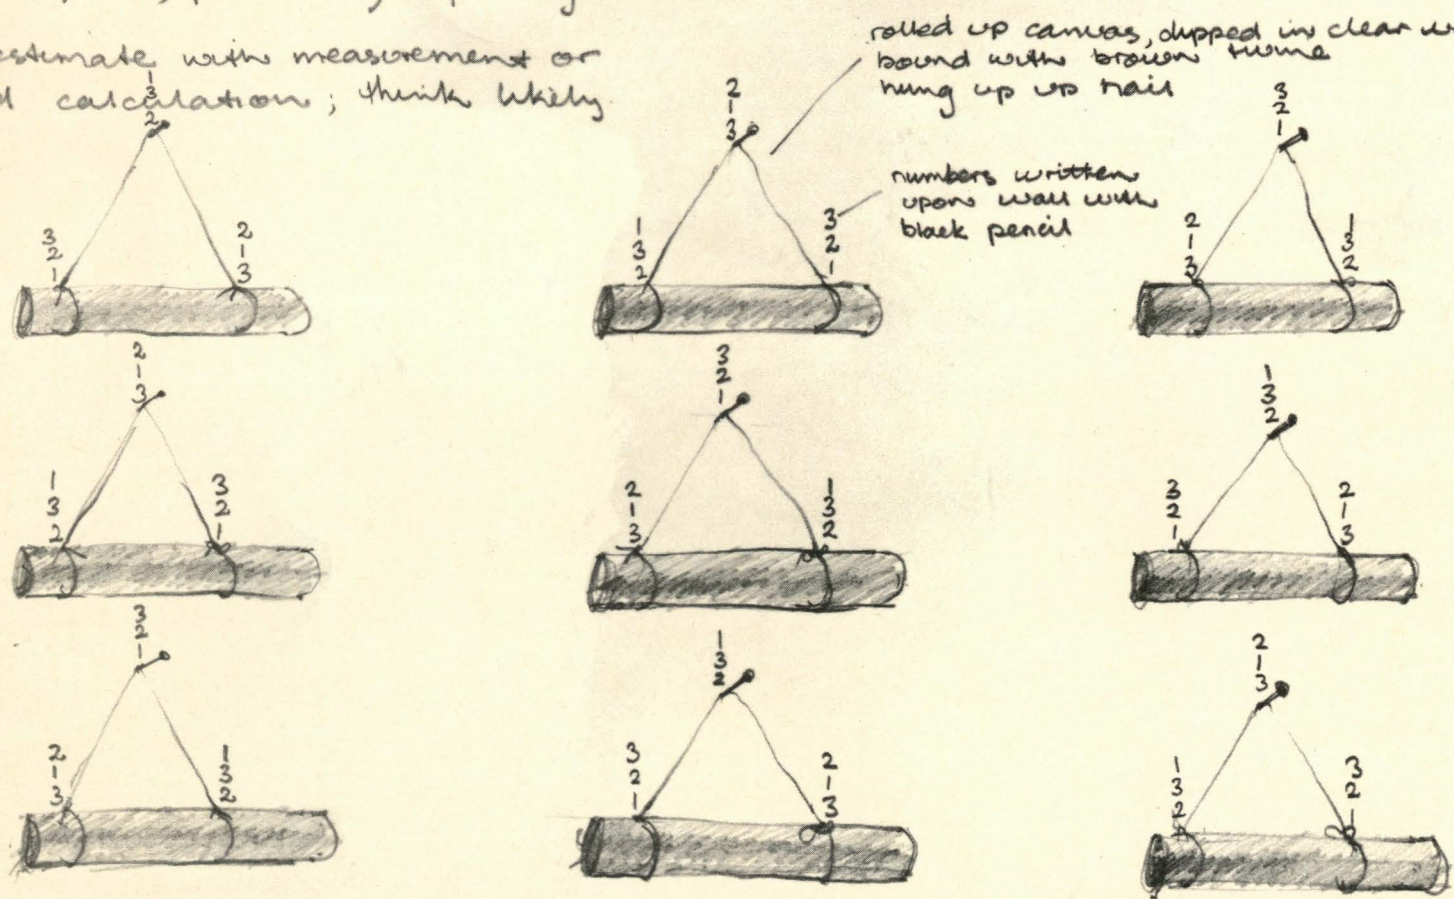 estimate with measurement or
calculation; think likely
rolled up canvas, dipped in clear
bound with brown twine
hung up up nail
numbers written
upon wall with
black pencil
1 3 2
3 2 1
2 1 3
2 1 3
1 3 2
3 2 1
3 2 1
2 1 3
1 3 2
2 1 3
1 3 2
3 2 1
3 2 1
2 1 3
1 3 2
1 3 2
3 2 1
2 1 3
3 2 1
2 1 3
1 3 2
1 3 2
3 2 1
2 1 3
2 1 3
1 3 2
3 2 1